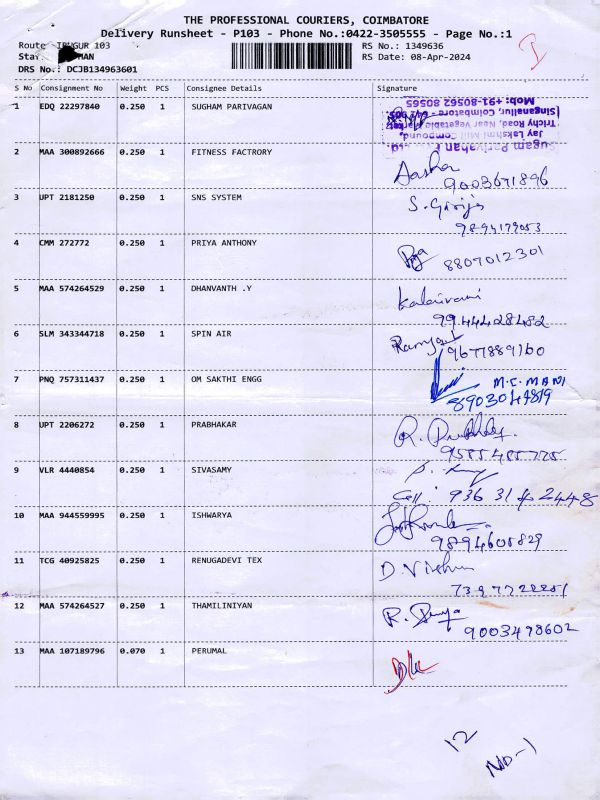 THE PROFESSIONAL COURIERS, COIMBATORE
Delivery Runsheet - P103 - Phone No.:0422-3505555 - Page No.:1
Route 103 RS No.: 1349636
MAN RS Date: 08-Apr-2024
DRS No.: DCJB134963601
S No Consignment No Weight PCS Consignee Details Signature
1 EDQ 22297840 0.250 1 SUGHAM PARIVAGAN
Mob: +91-80562 80565
Singanallur, Coimbatore
Trichy Road, Near Vegetable Market,
Jay Lakshmi Mill Compound,
Sugam Parivahan
2 MAA 300892666 0.250 1 FITNESS FACTRORY Aasha
9003671896
3 UPT 2181250 0.250 1 SNS SYSTEM S. Girija
9894179053
4 CMM 272772 0.250 1 PRIYA ANTHONY 8807012301
5 MAA 574264529 0.250 1 DHANVANTH .Y Kalaivani
9944428482
6 SLM 343344718 0.250 1 SPIN AIR 9677889160
7 PNQ 757311437 0.250 1 OM SAKTHI ENGG M.C. MANI
8903044819
8 UPT 2206272 0.250 1 PRABHAKAR
9585485725
9 VLR 4440854 0.250 1 SIVASAMY
Cell:
10 MAA 944559995 0.250 1 ISHWARYA
9894605829
11 TCG 40925825 0.250 1 RENUGADEVI TEX
12 MAA 574264527 0.250 1 THAMILINIYAN
9003498602
13 MAA 107189796 0.070 1 PERUMAL
12
ND-1